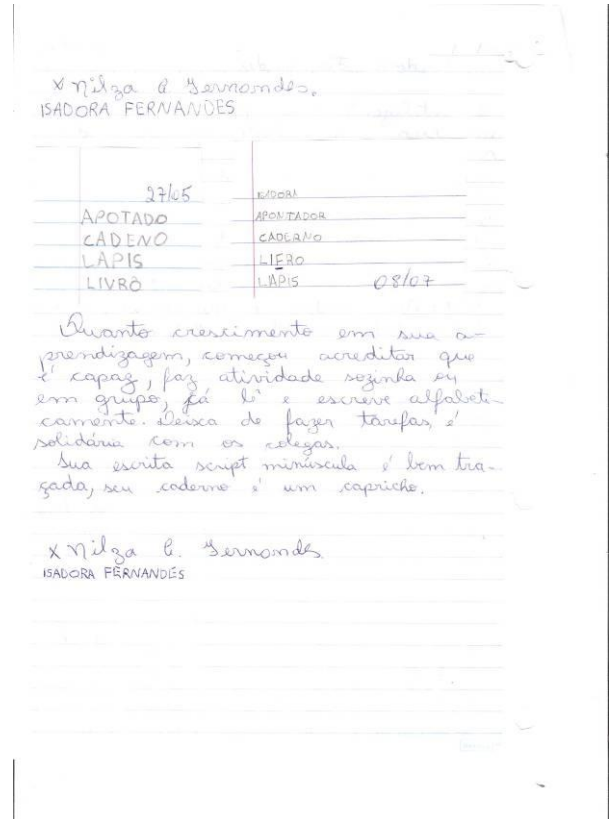 x Nilza C. Fernandes.
ISADORA FERNANDES
27/05
APOTADO
CADENO
LAPIS
LIVRO
ISADORA
APONTADOR
CADERNO
LIERO
LAPIS 08/07
Quanto crescimento em sua a-
prendizagem, começou acreditar que
é capaz, faz atividade sozinha ou
em grupo, já lê e escreve alfabeti-
camente. Deixa de fazer tarefas, é
solidária com os colegas.
Sua escrita script minúscula é bem tra-
çada, seu caderno é um capricho.
x Nilza C. Fernandes
ISADORA FERNANDES